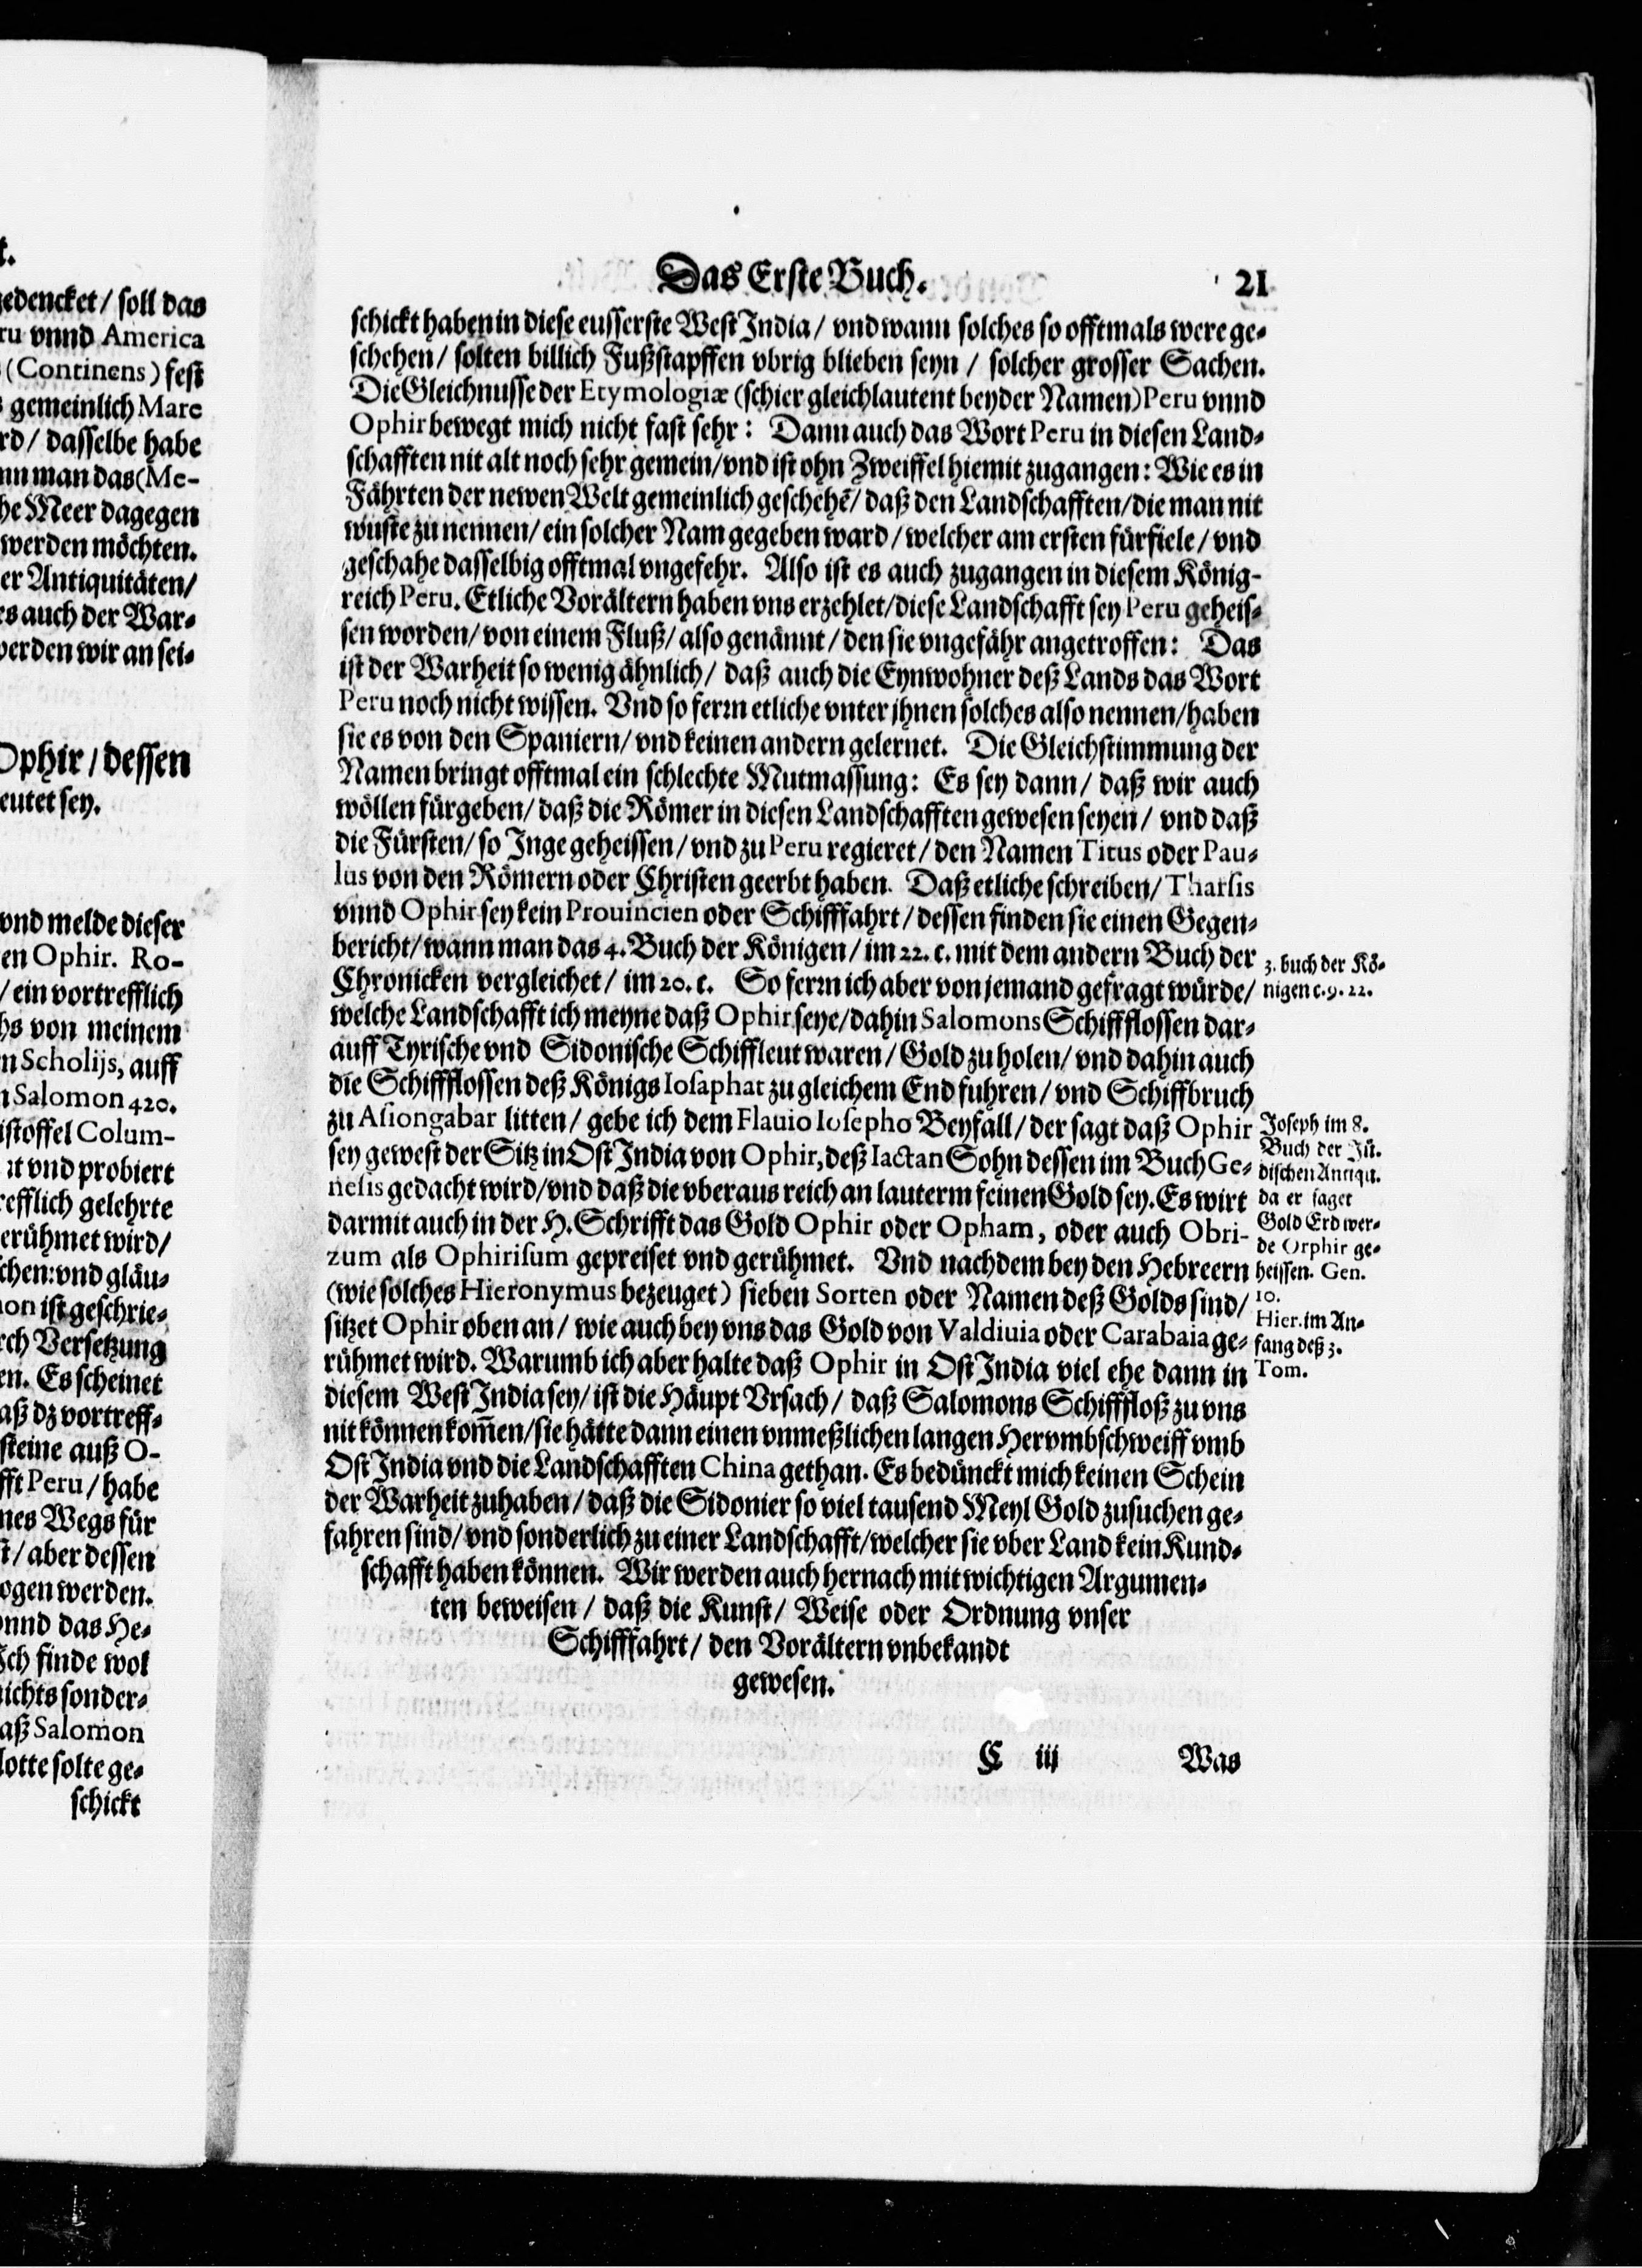 t.
gedencket / soll das
ru vnnd America
(Continens) fest
gemeinlich Mare
rd / dasselbe habe
nn man das (Me-
he Meer dagegen
werden möchten.
er Antiquitäten /
es auch der War-
werden wir an sei-
Ophir / dessen
eutet sey.
vnd melde dieser
en Ophir. Ro-
/ ein vortrefflich
hs von meinem
n Scholijs, auff
n Salomon 420.
istoffel Colum-
at vnd probiert
refflich gelehrte
erühmet wird /
chen: vnd gläu-
on ist geschrie-
rch Versetzung
en. Es scheinet
aß dz vortreff-
steine auß O-
fft Peru / habe
nes Wegs für
t / aber dessen
ogen werden.
vnnd das He-
Ich finde wol
nichts sonder-
aß Salomon
lotte solte ge-
schickt
Das Erste Buch. 21
schickt haben in diese eusserste West India / vnd wann solches so offtmals were ge-
schehen / solten billich Fußstapffen vbrig blieben seyn / solcher grosser Sachen.
Die Gleichnusse der Etymologiæ (schier gleichlautent beyder Namen) Peru vnnd
Ophir bewegt mich nicht fast sehr: Dann auch das Wort Peru in diesen Land-
schafften nit alt noch sehr gemein / vnd ist ohn Zweiffel hiemit zugangen: Wie es in
Fährten der newen Welt gemeinlich geschehẽ / daß den Landschafften / die man nit
wuste zu nennen / ein solcher Nam gegeben ward / welcher am ersten fürfiele / vnd
geschahe dasselbig offtmal vngefehr. Also ist es auch zugangen in diesem König-
reich Peru. Etliche Vorältern haben vns erzehlet / diese Landschafft sey Peru geheis-
sen worden / von einem Fluß / also genännt / den sie vngefähr angetroffen: Das
ist der Warheit so wenig ähnlich / daß auch die Eynwohner deß Lands das Wort
Peru noch nicht wissen. Vnd so ferrn etliche vnter jhnen solches also nennen / haben
sie es von den Spaniern / vnd keinen andern gelernet. Die Gleichstimmung der
Namen bringt offtmal ein schlechte Mutmassung: Es sey dann / daß wir auch
wöllen fürgeben / daß die Römer in diesen Landschafften gewesen seyen / vnd daß
die Fürsten / so Inge geheissen / vnd zu Peru regieret / den Namen Titus oder Pau-
lus von den Römern oder Christen geerbt haben. Daß etliche schreiben / Tharsis
vnnd Ophir sey kein Prouincien oder Schifffahrt / dessen finden sie einen Gegen-
bericht / wann man das 4. Buch der Königen / im 22. c. mit dem andern Buch der
Chronicken vergleichet / im 20. c. So ferrn ich aber von jemand gefragt würde /
welche Landschafft ich meyne daß Ophir seye / dahin Salomons Schiffflossen dar-
auff Tyrische vnd Sidonische Schiffleut waren / Gold zu holen / vnd dahin auch
die Schiffflossen deß Königs Iosaphat zu gleichem End fuhren / vnd Schiffbruch
zu Asiongabar litten / gebe ich dem Flauio Iosepho Beyfall / der sagt daß Ophir
sey gewest der Sitz in Ost India von Ophir, deß Iactan Sohn dessen im Buch Ge-
nesis gedacht wird / vnd daß die vberaus reich an lauterm feinen Gold sey. Es wirt
darmit auch in der H. Schrifft das Gold Ophir oder Opham, oder auch Obri-
zum als Ophirisum gepreiset vnd gerühmet. Vnd nachdem bey den Hebreern
(wie solches Hieronymus bezeuget) sieben Sorten oder Namen deß Golds sind /
sitzet Ophir oben an / wie auch bey vns das Gold von Valdiuia oder Carabaia ge-
rühmet wird. Warumb ich aber halte daß Ophir in Ost India viel ehe dann in
diesem West India sey / ist die Häupt Vrsach / daß Salomons Schifffloß zu vns
nit können kom̃en / sie hätte dann einen vnmeßlichen langen Hervmbschweiff vmb
Ost India vnd die Landschafften China gethan. Es bedünckt mich keinen Schein
der Warheit zuhaben / daß die Sidonier so viel tausend Meyl Gold zusuchen ge-
fahren sind / vnd sonderlich zu einer Landschafft / welcher sie vber Land kein Kund-
schafft haben können. Wir werden auch hernach mit wichtigen Argumen-
ten beweisen / daß die Kunst / Weise oder Ordnung vnser
Schifffahrt / den Vorältern vnbekandt
gewesen.
C iii Was
3. buch der Kö-
nigen c. 9. 22.
Joseph im 8.
Buch der Jü-
dischen Antiqu.
da er saget
Gold Erd wer-
de Orphir ge-
heissen. Gen.
10.
Hier. im An-
fang deß 3.
Tom.